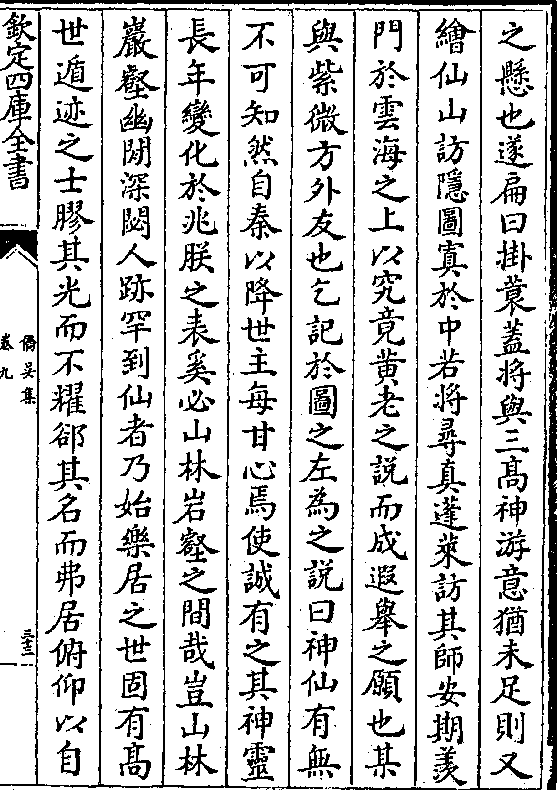 之懸也遂扁曰掛蓑蓋將與三髙神游意猶未足則又
繪仙山訪隱圖寘於中若將尋真蓬萊訪其師安期羨
門於雲海之上以究竟黄老之説而成遐舉之願也某
與紫微方外友也乞記於圖之左為之説曰神仙有無
不可知然自秦以降世主每甘心焉使誠有之其神靈
長年變化於兆朕之表奚必山林岩壑之間哉豈山林
巖壑幽閒深閟人跡罕到仙者乃始樂居之世固有髙
世遁迹之士膠其光而不耀郤其名而弗居俯仰以自
欽定四庫全書
僑吴集
卷九
三十三